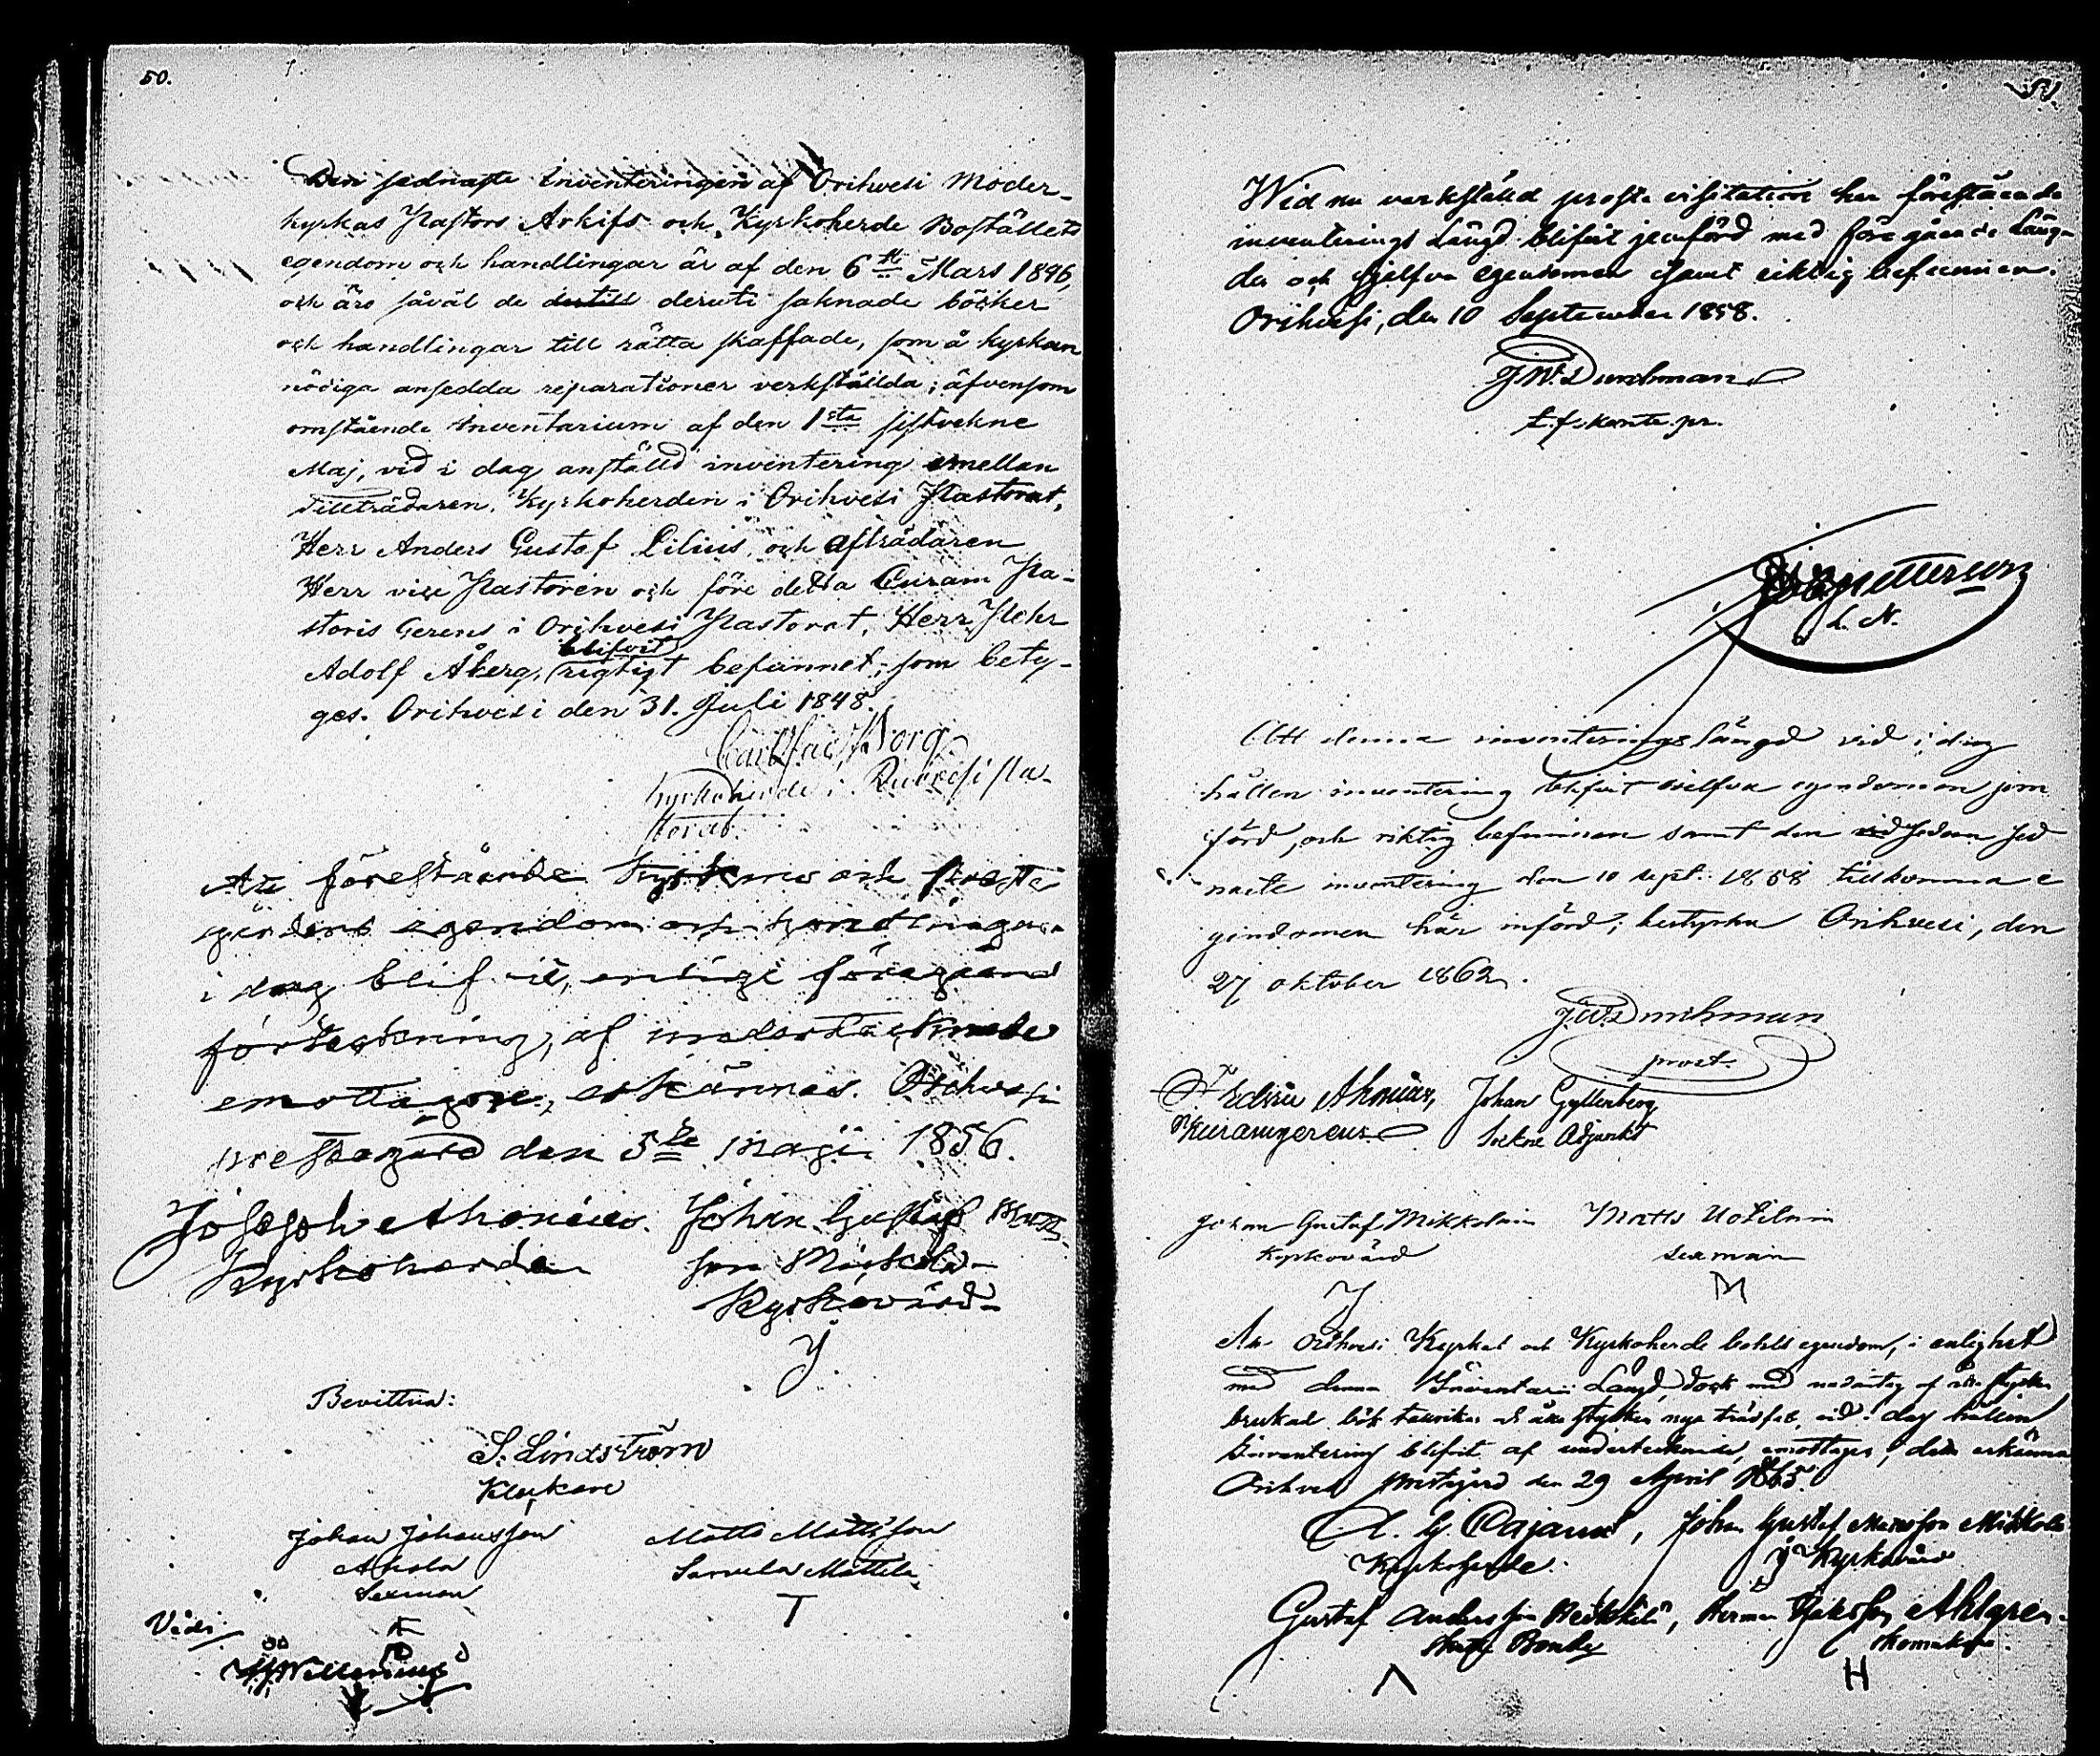 50.
Den sednaste inventeringen af Orihvesi Moder-
kyrkas Pastors Arkifs och Kyrkoherde Boställets
egendom och handlingar är af den 6te Mars 1846,
och äro såväl de deruti saknade böcker
och handlingar till rätta skaffade, som å kyrkan
nödiga ansedda reparationer verkställda; äfvensom
omstående Inventarium af den 1sta sistvekne
Maj, vid i dag anställd inventering emellan
Tillträdaren, Kyrkoherden i Orihvesi Pastorat,
Herr Anders Gustaf Lilius och afträdaren
Herr vice Pastoren och före detta Curam Pa-
storis Gerens i Orihvesi Pastorat, Herr Pehr
Adolf Åberg, blifvit rigtigt befunnet; som bety-
ges. Orihvesi den 31. Juli 1848.
Borg
Kyrkoherde i Ruovesi Pa-
storat.
At förestående kyrkans och prest-
gårdens egendom och handlingar
i dag blifvit, enligt föregående
förteckning, af undertecknade
emottagne, erkännes. Orihvesi
prestegård den 5te maji 1856.
Joseph Ahonius. Johan Gustaf
son Mickola
Kyrkoherde
Kyrkovärd
Bevittna:
S. Lindström
Klockare
Johan Johansson Matts Mattsson
Ahola Sarvela Mattila
Sexman
T
Vidi
51.
Wid nu verkställd prosta visitation har förestående
inventerings Längd blifvit jemförd med föregående Läng-
der och sjelfva egendomen samt riktig befunnen.
Orihvesi, den 10 September 1858.
J.W. Durchman
L. N.
Att denna inventeringslängd vid i dag
hållen inventering blifvit sjelfva egendomen jem
förd, och riktig befunnen samt den sedan sed
naste inventering den 10 sept. 1858 tillkomna e
gendomen här införd; bestyrka Orihvesi, den
27 oktober 1862.
J.W. Durchman
prost.
Edvin Ahonius, Johan Gyllenberg
Kuramgerens Sockne Adjunkt
Johan Gustaf Mikkolain Matts Uotilain
Kyrkovärd sexman
M
At Orihvesi Kyrkas och Kyrkoherde bohls egendom, i enlighet
med denna Inventarii Längd, dock med undantag af
brukat nya vid i dag hållen
Inventering blifvit af undertecknade, emottagen, erkänna
Orihvesi Prestgård den 29 April 1865.
A. G. Cajanus, Johan Gustaf Mikkola
Kyrkoherde. Kyrkovärd
Gustaf Andersson Heikkilä, Herman Ahlgren.
Bonde
H